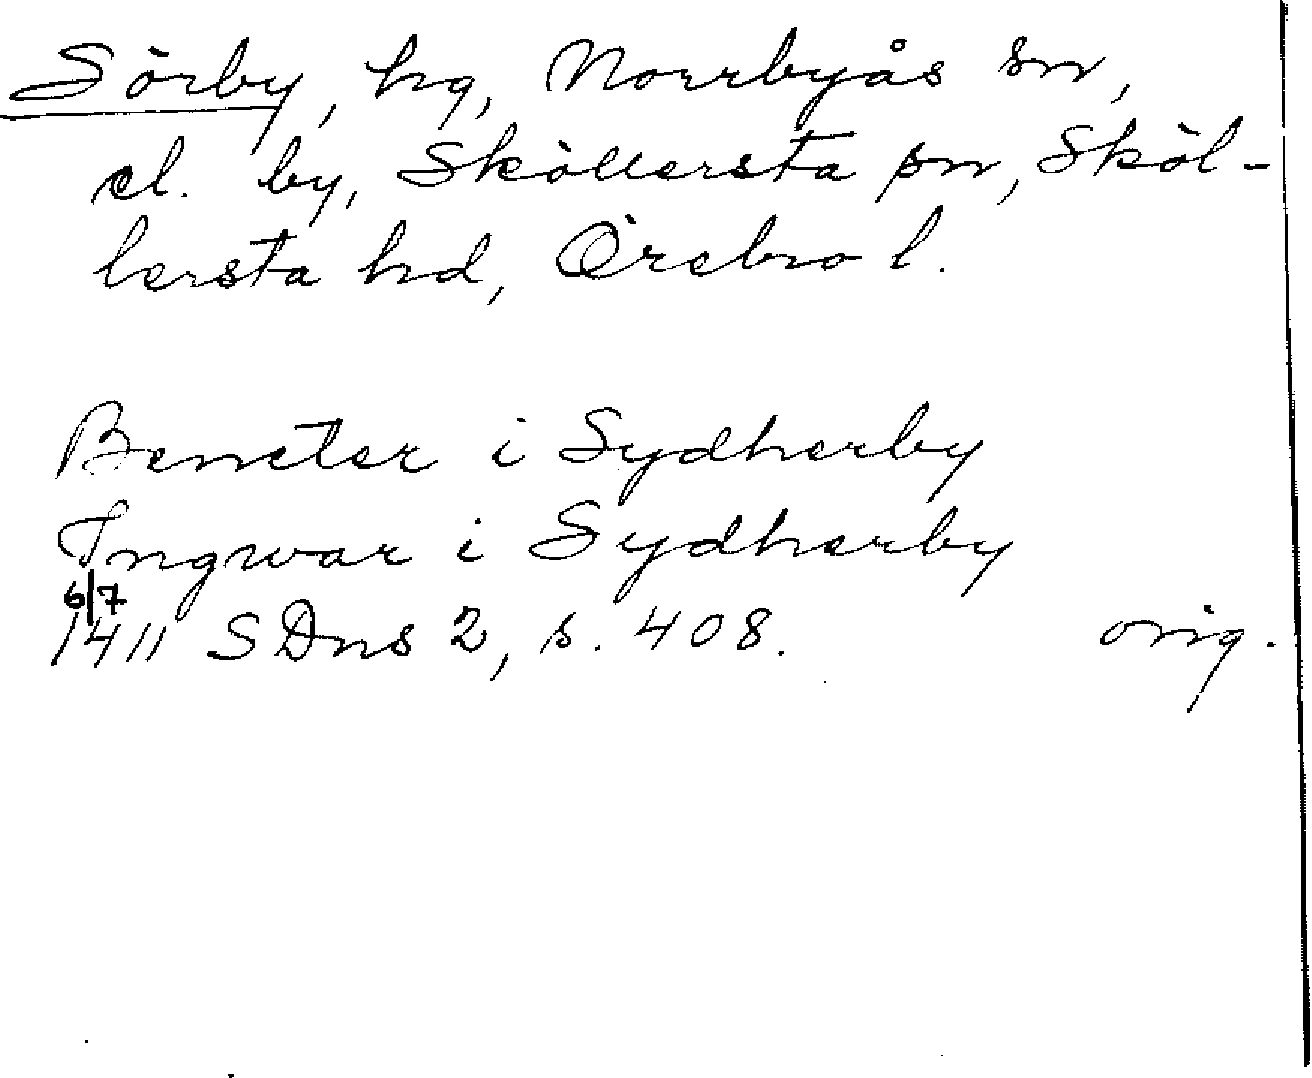 Sörby, hg, Norrbyås sn,
el. by, Sköllersta sn, Sköl-
lersta hd, Örebro l.
Beneter i Sydherby
Ingwar i Sydherby
6/7
1411 SDns 2, s. 408. orig.